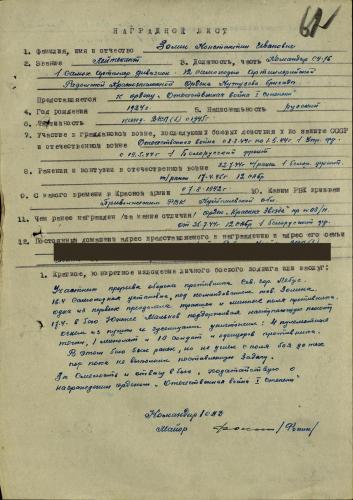 НАГРАДНОЙ ЛИСТ
1. Фамилия, имя и отчество Зомин Константин Иванович
2. Звание Лейтенант 3. Должность, часть Командир СУ-76
1 Самох. Артиллер. Дивизион 12 самоходн Артиллерийской
Радомской Краснознаменной Ордена Кутузова бригады
Представляется к ордену „Отечественная война I степени"
4. Год рождения 1924г. 5. Национальность русский
6. Партийность канд. ВКП(б) с 1945г.
7. Участие в гражданской войне, последующих боевых действиях по защите СССР
и отечественной войне Отечественная война
с 19.5.44г 1 Белорусский фронт
8. Ранения и контузии в отечественной войне 22.7.44г 1 Белор. фронт.
17.4.45г. 12 САБр
9. С какого времени в Красной армии с 7.8.1942г. 10. Каким РВК призван
РВК обл.
11. Чем ранее награжден /за какие отличия/ орден „Красная Звезда" пр. №03/н
от 26.7.44г. 12 САБр 1 Белорусский фр.
12. Постоянный домашний адрес представляемого к награждению и адрес его семьи
1. Краткое, конкретное изложение личного боевого подвига или заслуг:
Участник прорыва обороны противника Сев. гор Лебус.
16.4 Самоходная установка, под командованием тов. Зомина
одна из первых преодолела траншеи и минные поля противника.
17.4. в бою Южнее поддерживая наступающую пехоту
огнем из пушки и гусеницами уничтожил: 4 пулеметных
точки, 1 миномет и 10 солдат и офицеров противника.
В этом бою был ранен, но не ушел с поля боя до тех
пор пока не выполнил поставленную задачу.
За смелость и отвагу в бою, ходатайствую о
награждении орденом „Отечественная война I степени"
Командир 1 САД
Майор /Фомин/